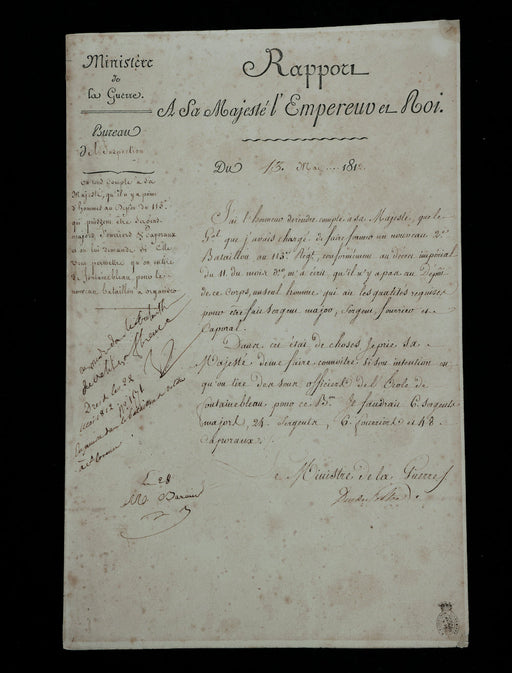 Ministère
de
la Guerre.
Bureau
de l'Inspection
Rapport
A Sa Majesté l'Empereur et Roi.
Du 13. Mai 1812
On rend compte à sa
Majesté, qu'il n'y a point
d'hommes au Dépôt du 113e
qui puissent être Sergents
majors, Fourriers & Caporaux
et on lui demande si Elle
veut permettre qu'on en tire
de fontainebleau, pour le
nouveau bataillon à organiser
J'ai l'honneur de rendre compte a sa Majesté, que le
Gal que j'avais chargé de faire former un nouveau 2e
Bataillon au 113e Régt, conformément au décret impérial
du 11 du mois dr m'a écrit, qu'il n'y a pas au dépôt
de ce corps, un seul homme qui ait les qualités requises
pour être fait sergent major, sergent, fourrier et
Caporal.
Dans cet état de choses je prie sa
Majesté de me faire connaître si son intention est
qu'on tire des sous officiers de l'École de
fontainebleau pour ce Bon. Il faudrait 6 sergents
majors, 24 sergents, 6 fourriers et 48
Caporaux.
Le Ministre de la Guerre